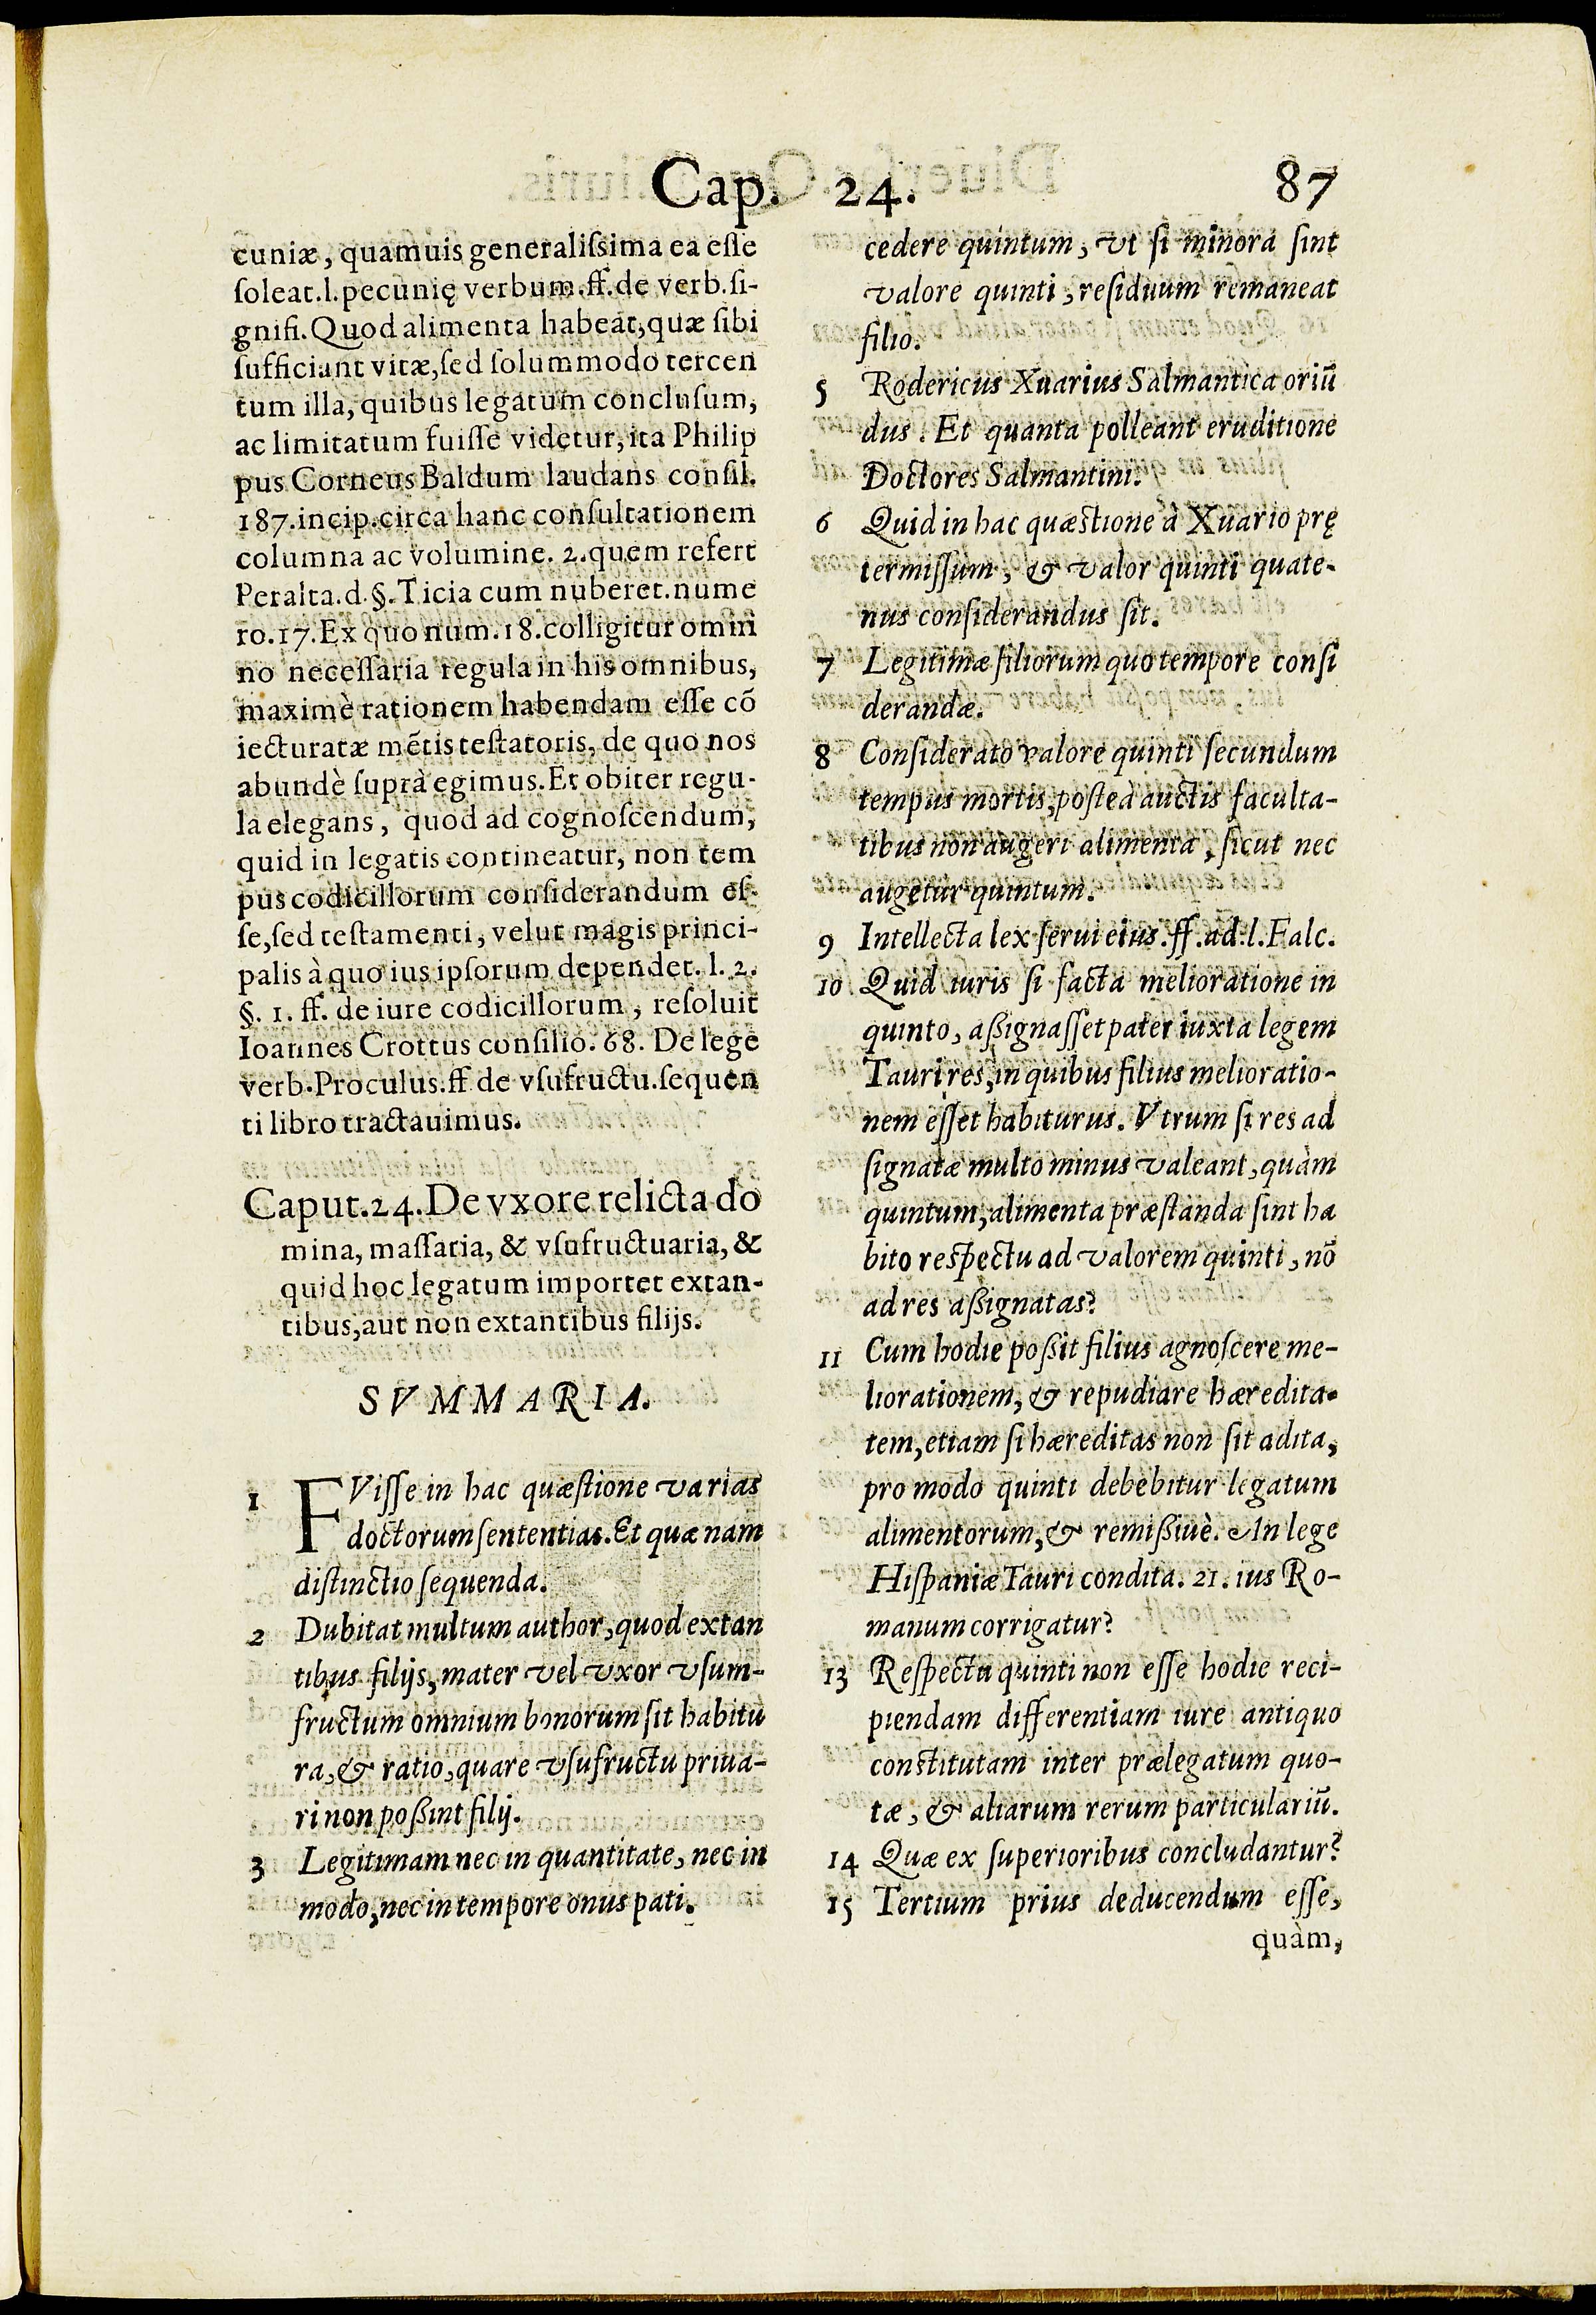 Cap. 24. 87
cuniæ, quamuis generaliſsima ea eſſe
ſoleat.l.pecunię verbum.ff.de verb.ſi-
gnifi.Quod alimenta habeat, quæ ſibi
ſufficiant vitæ, ſed ſolummodo tercen
tum illa, quibus legatum concluſum,
ac limitatum fuiſſe videtur, ita Philip
pus Corneus Baldum laudans conſil.
187.incip.circa hanc conſultationem
columna ac volumine. 2.quem refert
Peralta.d.§.Ticia cum nuberet.nume
ro.17.Ex quo num.18.colligitur omni
no neceſſaria regula in his omnibus,
maximè rationem habendam eſſe cõ
iecturatæ mẽtis teſtatoris, de quo nos
abundè ſuprà egimus.Et obiter regu-
la elegans, quod ad cognoſcendum,
quid in legatis contineatur, non tem
pus codicillorum conſiderandum eſ-
ſe, ſed teſtamenti, velut magis princi-
palis à quo ius ipſorum dependet. l. 2.
§. 1. ff. de iure codicillorum, reſoluit
Ioannes Crottus conſilio. 68. De lege
verb.Proculus.ff de vſufructu.ſequen
ti libro tractauimus.
Caput.24.De vxore relicta do
mina, maſſaria, & vſufructuaria, &
quid hoc legatum importet extan-
tibus, aut non extantibus filijs.
SVMMARIA.
1 FViſſe in hac quæſtione varias
doctorum ſententias. Et quæ nam
diſtinctio ſequenda.
2 Dubitat multum author, quod extan
tibus filijs, mater vel vxor vſum-
fructum omnium bonorum ſit habitu
ra, & ratio, quare vſufructu priua-
ri non poßint filij.
3 Legitimam nec in quantitate, nec in
modo, nec in tempore onus pati.
cedere quintum, vt ſi minora ſint
valore quinti, reſiduum remaneat
filio.
5 Rodericus Xuarius Salmantica oriũ
dus. Et quanta polleant eruditione
Doctores Salmantini.
6 Quid in hac quæſtione à Xuario prę
termiſſum, & valor quinti quate-
nus conſiderandus ſit.
7 Legitimæ filiorum quo tempore conſi
derandæ.
8 Conſiderato valore quinti ſecundum
tempus mortis, poſtea auctis faculta-
tibus non augeri alimenta, ſicut nec
augetur quintum.
9 Intellecta lex ſerui eius.ff.ad.l.Falc.
10 Quid iuris ſi facta melioratione in
quinto, aßignaſſet pater iuxta legem
Tauri res, in quibus filius melioratio-
nem eſſet habiturus. Vtrum ſi res ad
ſignatæ multo minus valeant, quàm
quintum, alimenta præſtanda ſint ha
bito reſpectu ad valorem quinti, nõ
ad res aßignatas?
11 Cum hodie poßit filius agnoſcere me-
liorationem, & repudiare hæredita-
tem, etiam ſi hæreditas non ſit adita,
pro modo quinti debebitur legatum
alimentorum, & remißiuè. In lege
Hiſpaniæ Tauri condita. 21. ius Ro-
manum corrigatur?
13 Reſpectu quinti non eſſe hodie reci-
piendam differentiam iure antiquo
conſtitutam inter prælegatum quo-
tæ, & aliarum rerum particulariũ.
14 Quæ ex ſuperioribus concludantur?
15 Tertium prius deducendum eſſe,
quàm,